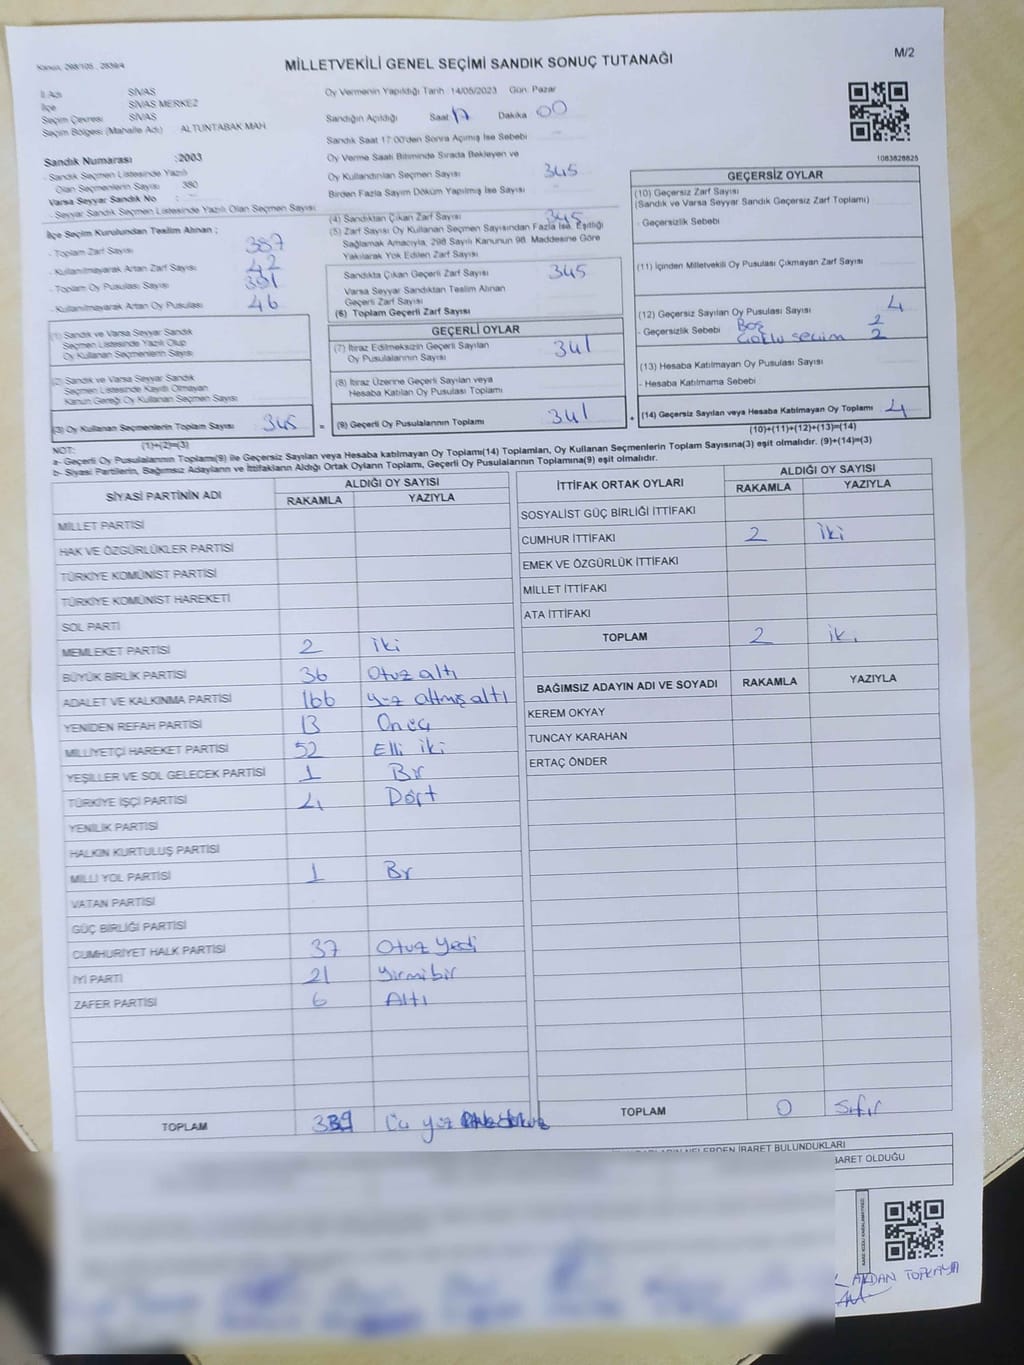 Kanun, 298/105 , 2839/4
MİLLETVEKİLİ GENEL SEÇİMİ SANDIK SONUÇ TUTANAĞI
M/2
İl Adı SİVAS
İlçe SİVAS MERKEZ
Seçim Çevresi SİVAS
Seçim Bölgesi (Mahalle Adı) ALTUNTABAK MAH.
Sandık Numarası :2003
- Sandık Seçmen Listesinde Yazılı
Olan Seçmenlerin Sayısı 380
Varsa Seyyar Sandık No :
- Seyyar Sandık Seçmen Listesinde Yazılı Olan Seçmen Sayısı
İlçe Seçim Kurulundan Teslim Alınan ;
- Toplam Zarf Sayısı 387
- Kullanılmayarak Artan Zarf Sayısı 42
- Toplam Oy Pusulası Sayısı 391
- Kullanılmayarak Artan Oy Pusulası 46
(1) Sandık ve Varsa Seyyar Sandık
Seçmen Listesinde Yazılı Olup
Oy Kullanan Seçmenlerin Sayısı
(2) Sandık ve Varsa Seyyar Sandık
Seçmen Listesinde Kayıtlı Olmayan
Kanun Gereği Oy Kullanan Seçmen Sayısı
(3) Oy Kullanan Seçmenlerin Toplam Sayısı 345 =
(1)+(2)=(3)
Oy Vermenin Yapıldığı Tarih :14/05/2023 Gün: Pazar
Sandığın Açıldığı Saat 17 Dakika 00
Sandık Saat 17:00'den Sonra Açılmış İse Sebebi
Oy Verme Saati Bitiminde Sırada Bekleyen ve
Oy Kullandırılan Seçmen Sayısı 345
Birden Fazla Sayım Döküm Yapılmış İse Sayısı
(4) Sandıktan Çıkan Zarf Sayısı 345
(5) Zarf Sayısı Oy Kullanan Seçmen Sayısından Fazla İse, Eşitliği
Sağlamak Amacıyla, 298 Sayılı Kanunun 98. Maddesine Göre
Yakılarak Yok Edilen Zarf Sayısı
Sandıkta Çıkan Geçerli Zarf Sayısı 345
Varsa Seyyar Sandıktan Teslim Alınan
Geçerli Zarf Sayısı
(6) Toplam Geçerli Zarf Sayısı
GEÇERLİ OYLAR
(7) İtiraz Edilmeksizin Geçerli Sayılan
Oy Pusulalarının Sayısı 341
(8) İtiraz Üzerine Geçerli Sayılan veya
Hesaba Katılan Oy Pusulası Toplamı
(9) Geçerli Oy Pusulalarının Toplamı 341 +
1083828825
GEÇERSİZ OYLAR
(10) Geçersiz Zarf Sayısı
(Sandık ve Varsa Seyyar Sandık Geçersiz Zarf Toplamı)
- Geçersizlik Sebebi
(11) İçinden Milletvekili Oy Pusulası Çıkmayan Zarf Sayısı
(12) Geçersiz Sayılan Oy Pusulası Sayısı 4
- Geçersizlik Sebebi Boş 2
Çoklu seçim 2
(13) Hesaba Katılmayan Oy Pusulası Sayısı
- Hesaba Katılmama Sebebi
(14) Geçersiz Sayılan veya Hesaba Katılmayan Oy Toplamı 4
(10)+(11)+(12)+(13)=(14)
NOT:
a- Geçerli Oy Pusulasının Toplamı(9) ile Geçersiz Sayılan veya Hesaba katılmayan Oy Toplamı(14) Toplamları, Oy Kullanan Seçmenlerin Toplam Sayısına(3) eşit olmalıdır. (9)+(14)=(3)
b- Siyasi Partilerin, Bağımsız Adayların ve İttifakların Aldığı Ortak Oyların Toplamı, Geçerli Oy Pusulalarının Toplamına(9) eşit olmalıdır.
SİYASİ PARTİNİN ADI ALDIĞI OY SAYISI
RAKAMLA YAZIYLA
MİLLET PARTİSİ
HAK VE ÖZGÜRLÜKLER PARTİSİ
TÜRKİYE KOMÜNİST PARTİSİ
TÜRKİYE KOMÜNİST HAREKETİ
SOL PARTİ
MEMLEKET PARTİSİ 2 iki
BÜYÜK BİRLİK PARTİSİ 36 Otuz altı
ADALET VE KALKINMA PARTİSİ 166 yüz altmış altı
YENİDEN REFAH PARTİSİ 13 Onüç
MİLLİYETÇİ HAREKET PARTİSİ 52 Elli iki
YEŞİLLER VE SOL GELECEK PARTİSİ 1 Bir
TÜRKİYE İŞÇİ PARTİSİ 4 Dört
YENİLİK PARTİSİ
HALKIN KURTULUŞ PARTİSİ
MİLLİ YOL PARTİSİ 1 Bir
VATAN PARTİSİ
GÜÇ BİRLİĞİ PARTİSİ
CUMHURİYET HALK PARTİSİ 37 Otuz yedi
İYİ PARTİ 21 yirmibir
ZAFER PARTİSİ 6 Altı
TOPLAM 339 Üç yüz
İTTİFAK ORTAK OYLARI ALDIĞI OY SAYISI
RAKAMLA YAZIYLA
SOSYALİST GÜÇ BİRLİĞİ İTTİFAKI
CUMHUR İTTİFAKI 2 iki
EMEK VE ÖZGÜRLÜK İTTİFAKI
MİLLET İTTİFAKI
ATA İTTİFAKI
TOPLAM 2 iki
BAĞIMSIZ ADAYIN ADI VE SOYADI RAKAMLA YAZIYLA
KEREM OKYAY
TUNCAY KARAHAN
ERTAÇ ÖNDER
TOPLAM 0 Sıfır
NELERDEN İBARET BULUNDUKLARI
İBARET OLDUĞU
TOPKAYA